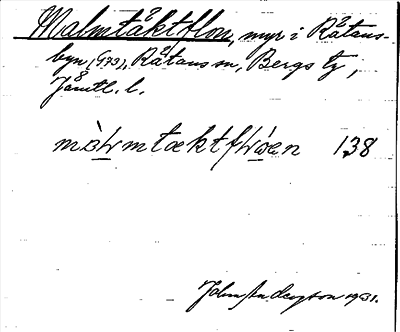 Malmtäktflon, myr i Råtans-
byn (G73), Råtans sn, Bergs tg,
Jämtl. l.
mòɫmtæktfɫóen 138
John Anderzson 1931.